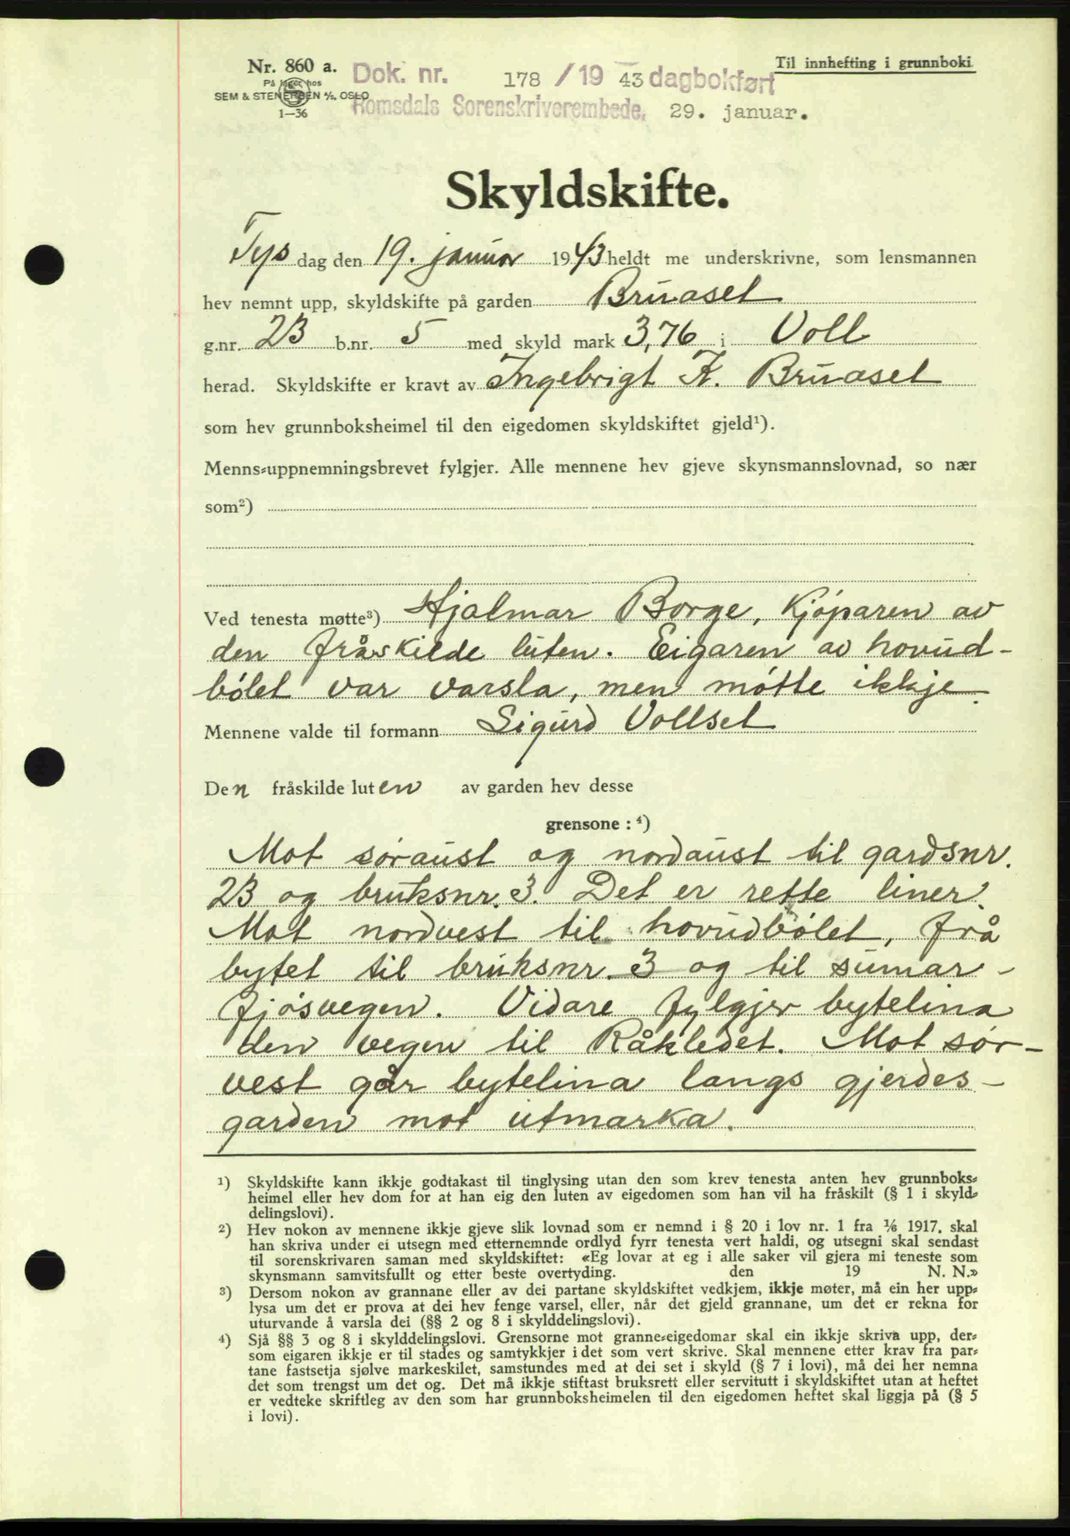 Nr. 860 a.
På lager hos
SEM & STENERSEN A/S, OSLO
1—36
Dok. nr. 178 / 19 43 dagbokført
Romsdals Sorenskriverembede, 29. januar.
Til innhefting i grunnboki
Skyldskifte.
Tys dag den 19. januar 1943 heldt me underskrivne, som lensmannen
hev nemnt upp, skyldskifte på garden Bruaset
g.nr. 23 b.nr. 5 med skyld mark 3,76 i Voll
herad. Skyldskifte er kravt av Ingebrigt K. Bruaset
som hev grunnboksheimel til den eigedomen skyldskiftet gjeld¹).
Menns-uppnemningsbrevet fylgjer. Alle mennene hev gjeve skynsmannslovnad, so nær
som²)
Ved tenesta møtte³) Hjalmar Borge, kjøparen av
den fråskilde luten. Eigaren av hovud-
bølet var varsla, men møtte ikkje.
Mennene valde til formann Sigurd Vollset
Den fråskilde luten av garden hev desse
grensone : ⁴)
Mot søraust og nordaust til gardsnr.
23 og bruksnr. 3. Det er rette liner.
Mot nordvest til hovudbølet, frå
bytet til bruksnr. 3 og til sumar-
fjøsvegen. Vidare fylgjer bytelina
den vegen til Råkledet. Mot sør-
vest går bytelina langs gjerdes-
garden mot utmarka.
¹) Skyldskifte kann ikkje godtakast til tinglysing utan den som krev tenesta anten hev grunnboks-
heimel eller hev dom for at han eig den luten av eigedomen som han vil ha fråskilt (§ 1 i skyld-
delingslovi).
²) Hev nokon av mennene ikkje gjeve slik lovnad som er nemnd i § 20 i lov nr. 1 fra 1/6 1917, skal
han skriva under ei utsegn med etternemnde ordlyd fyrr tenesta vert haldi, og utsegni skal sendast
til sorenskrivaren saman med skyldskiftet: «Eg lovar at eg i alle saker vil gjera mi teneste som
skynsmann samvitsfullt og etter beste overtyding. den 19 N. N.»
³) Dersom nokon av grannane eller av dei partane skyldskiftet vedkjem, ikkje møter, må ein her upp-
lysa um det er prova at dei hev fenge varsel, eller, når det gjeld grannane, um det er rekna for
uturvande å varsla dei (§§ 2 og 8 i skylddelingslovi).
⁴) Sjå §§ 3 og 8 i skylddelingslovi. Grensorne mot granne-eigedomar skal ein ikkje skriva upp, der-
som eigaren ikkje er til stades og samtykkjer i det som vert skrive. Skal mennene etter krav fra par-
tane fastsetja sjølve markeskilet, samstundes med at dei set i skyld (§ 7 i lovi), må dei her nemna
det som trengst um det og. Det må ikkje stiftast bruksrett eller servitutt i skyldskiftet utan at heftet
er vedteke skriftleg av den som har grunnboksheimelen til den eigedomen heftet skal liggja på (§ 5
i lovi).